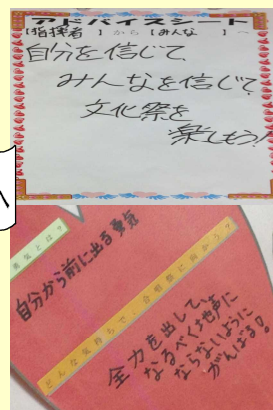 アドバイスシート
【指揮者】から【みんな】へ
自分を信じて、
みんなを信じて
文化祭を
楽しもう!
勇気とは?
自分から前に出る勇気
どんな気持ちで、合唱祭に向かう?
全力を出して、
なるべく地声に
ならないように
がんばる!!